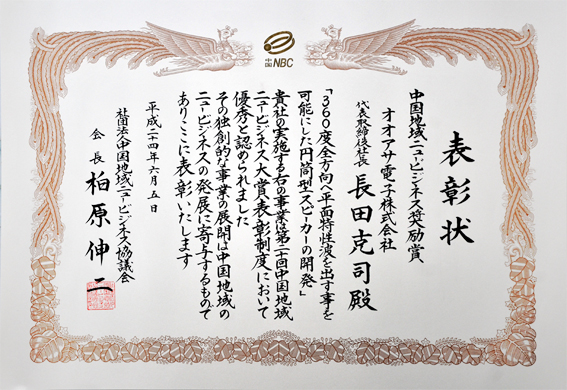 中国 NBC
表彰状
中国地域ニュービジネス奨励賞
オオアサ電子株式会社
代表取締役社長 長田克司殿
「360度全方向へ平面特性波を出す事を
可能にした円筒型スピーカーの開発」
貴社の実施する右の事業は第二十回中国地域
ニュービジネス大賞表彰制度において
優秀と認められました
その独創的な事業の展開は中国地域の
ニュービジネスの発展に寄与するもので
ありここに表彰いたします
平成二十四年六月五日
社団法人中国地域ニュービジネス協議会
会長 柏原伸二